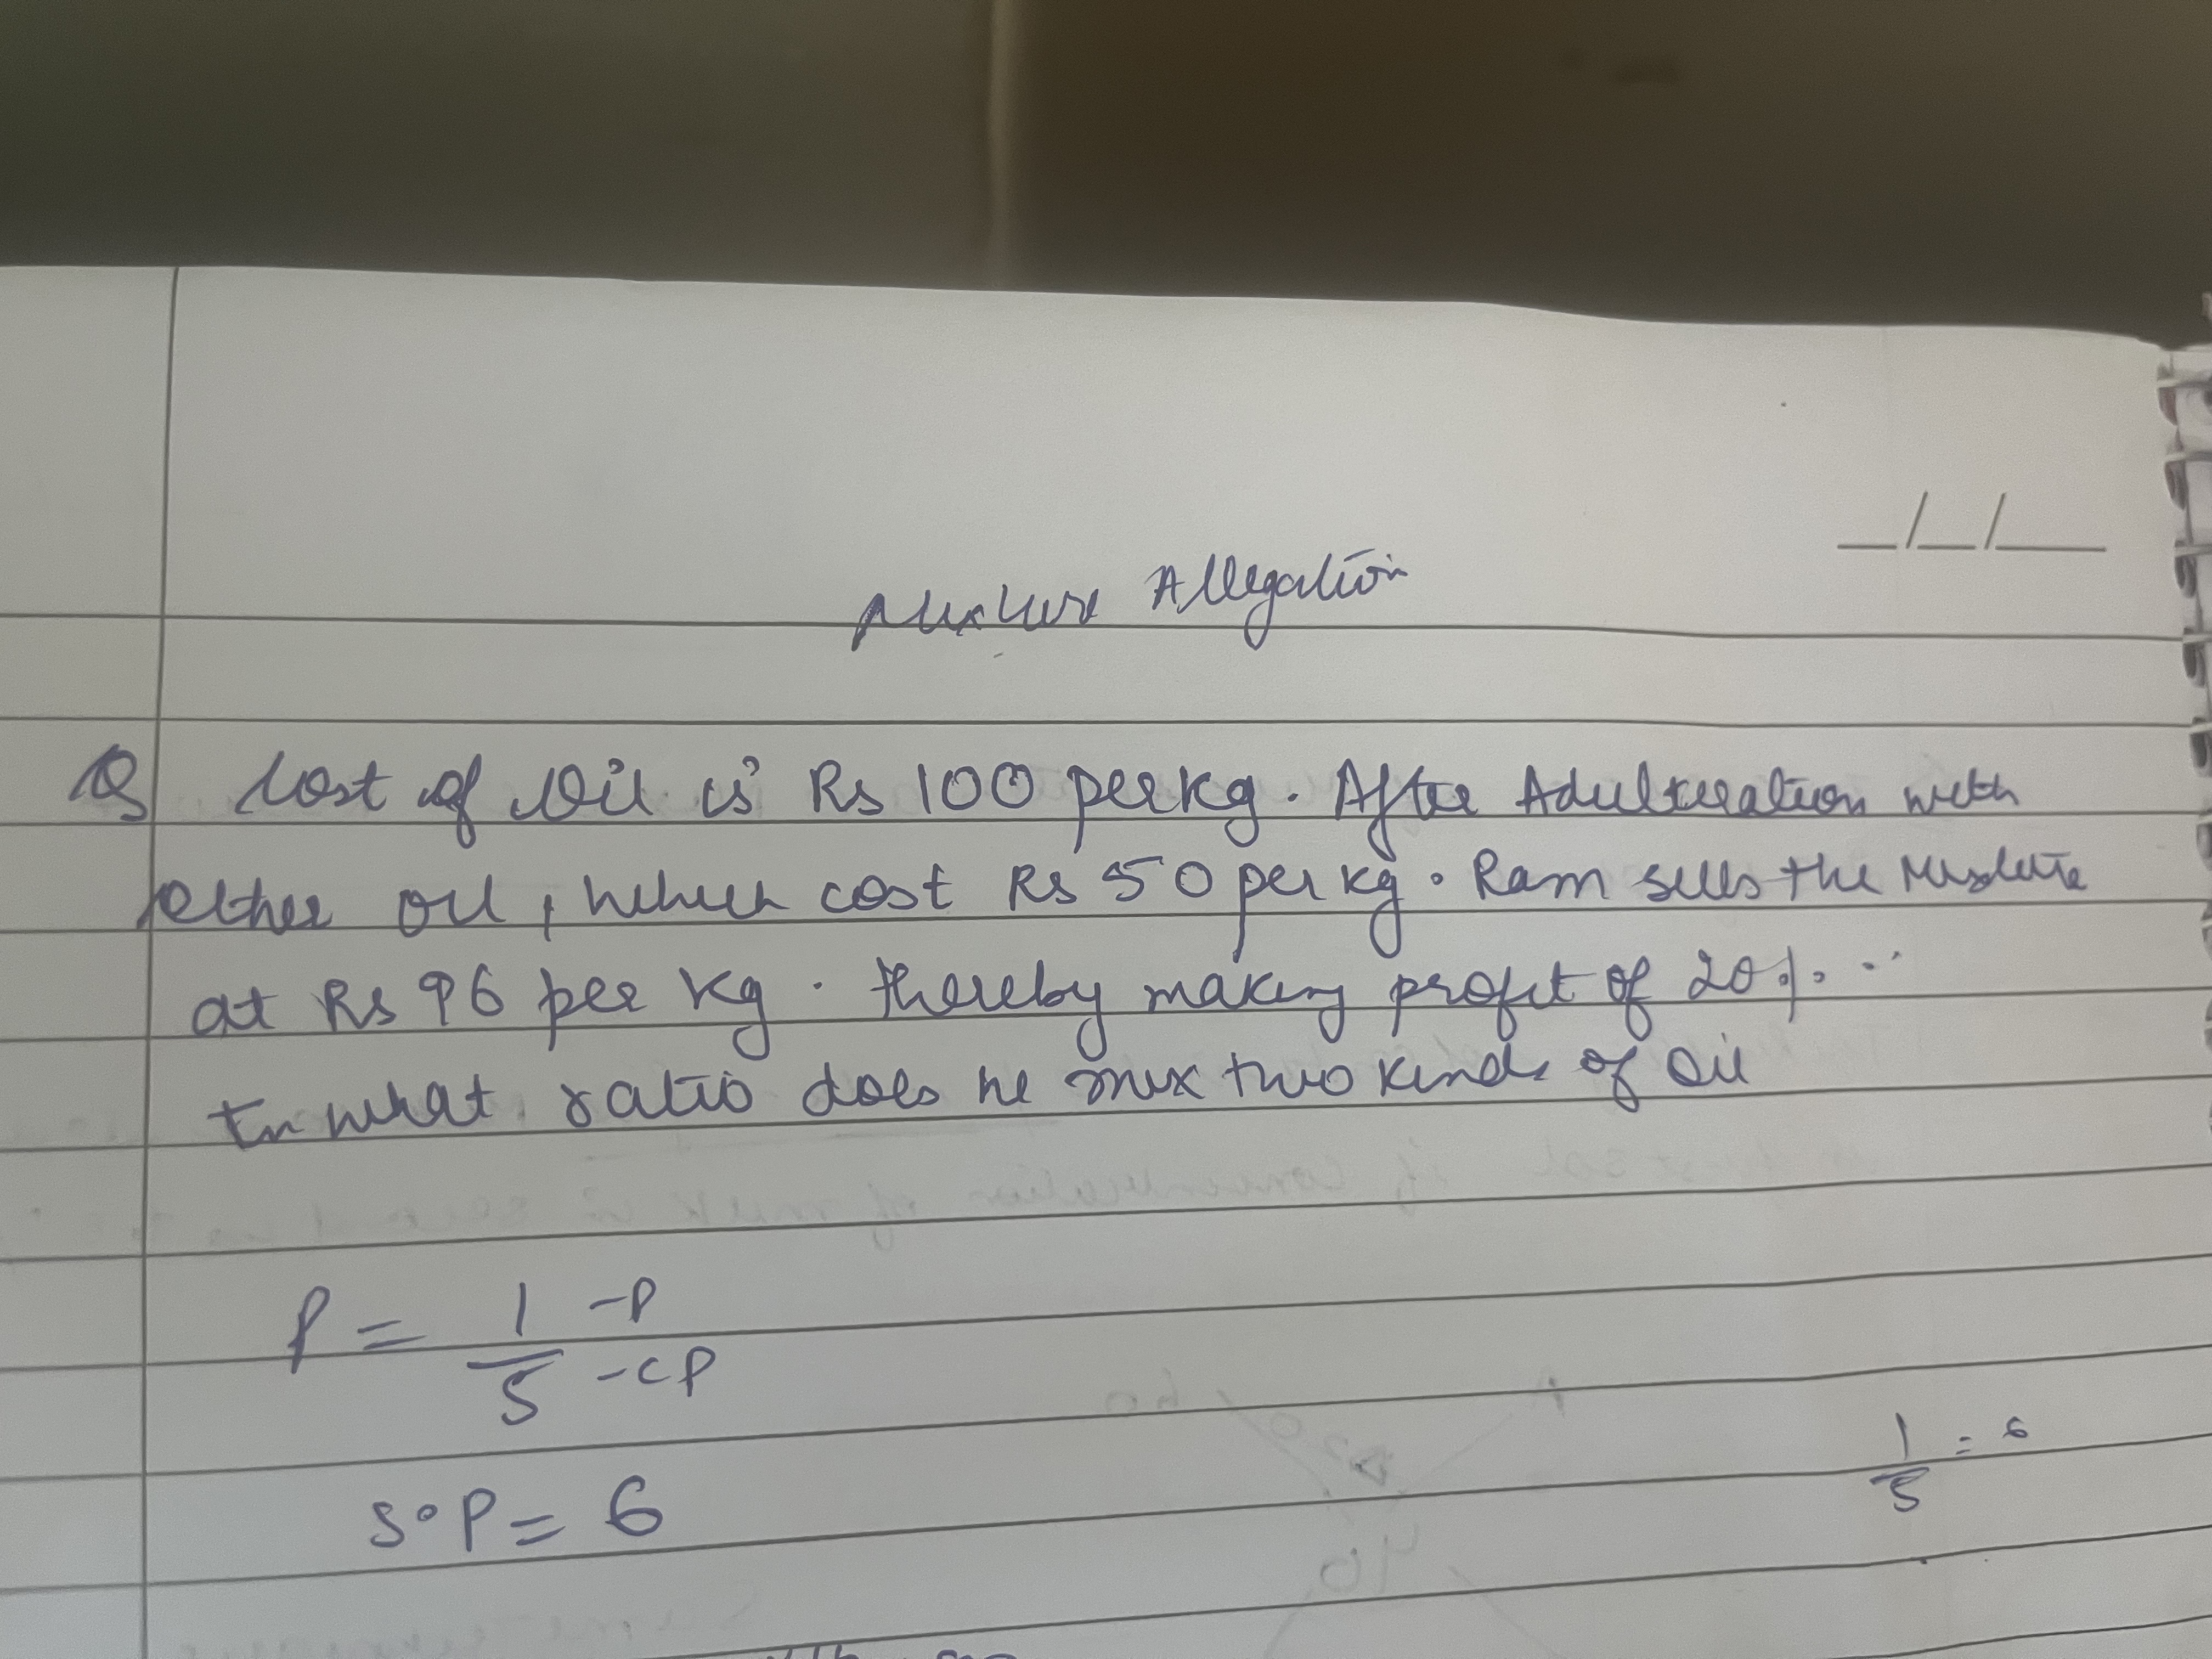 Mixture Allegation
Q Cost of Oil is Rs 100 per kg. After Adulteration with
other oil, which cost Rs 50 per kg. Ram sells the Mixture
at Rs 96 per kg. thereby making profit of 20%.
In what ratio does he mix two kinds of oil
P = 1/5 -P -CP
1/5 = 6
S.P = 6